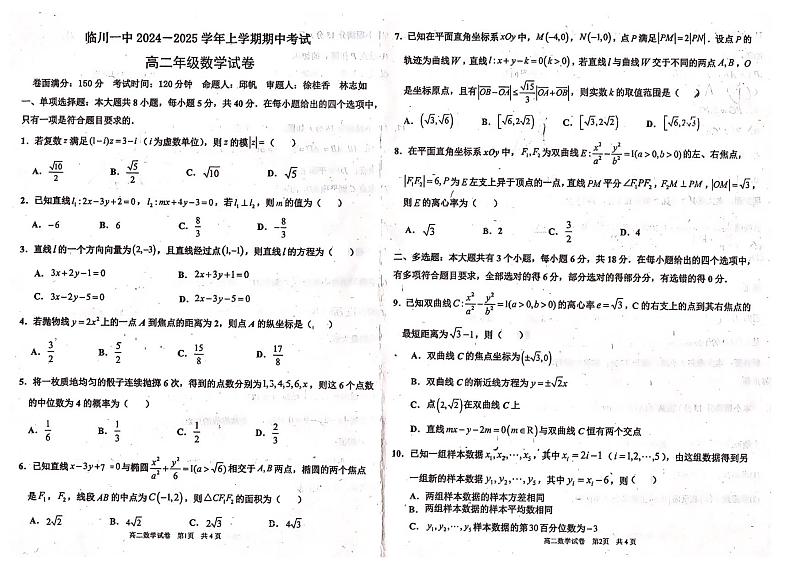 临川一中 2024－2025 学年上学期期中考试
高二年级数学试卷
卷面满分：150 分 考试时间：120 分钟 命题人：邱帆 审题人：徐桂香 林志如
一、单项选择题：本大题共 8 小题，每小题 5 分，共 40 分．在每小题给出的四个选项中，
只有一项是符合题目要求的．
1．若复数 z 满足(1-i)z=3-i（i 为虚数单位），则 z 的模|z|=（ ）
A．√10/2 B．√5/2 C．√10 D．√5
2．已知直线 l₁:2x-3y+2=0，l₂:mx+4y-3=0，若 l₁⊥l₂，则 m 的值为（ ）
A．-6 B．6 C．8/3 D．-8/3
3．直线 l 的一个方向向量为(2,-3)，且直线经过点(1,-1)，则直线 l 的方程为（ ）
A．3x+2y-1=0 B．2x+3y+1=0
C．3x-2y-5=0 D．2x-3y-5=0
4．若抛物线 y=2x² 上的一点 A 到焦点的距离为 2，则点 A 的纵坐标是（ ）
A．3/2 B．5/2 C．15/8 D．17/8
5．将一枚质地均匀的骰子连续抛掷 6 次，得到的点数分别为 1,3,4,5,6,x，则这 6 个点数
的中位数为 4 的概率为（ ）
A．1/6 B．1/3 C．1/2 D．2/3
6．已知直线 x-3y+7=0 与椭圆 x²/a²+y²/6=1(a>√6) 相交于 A,B 两点，椭圆的两个焦点
是 F₁，F₂，线段 AB 的中点为 C(-1,2)，则△CF₁F₂ 的面积为（ ）
A．2√2 B．4√2 C．2√3 D．4√3
高二数学试卷 第1页 共 4页
7．已知在平面直角坐标系 xOy 中，M(-4,0)，N(-1,0)，点 P 满足|PM|=2|PN|．设点 P 的
轨迹为曲线 W，直线 l:x+y-k=0(k>0)，若直线 l 与曲线 W 交于不同的两点 A,B，O
是坐标原点，且有|OB-OA|≤√15/3|OA+OB|，则实数 k 的取值范围是（ ）
A．(√3,√6) B．[√6,2√2) C．[√3,2√2) D．[√6,2√3)
8．在平面直角坐标系 xOy 中，F₁,F₂ 为双曲线 E:x²/a²-y²/b²=1(a>0,b>0) 的左、右焦点，
|F₁F₂|=6,P 为 E 左支上异于顶点的一点，直线 PM 平分∠F₁PF₂，F₂M⊥PM，|OM|=√3，
则 E 的离心率为（ ）
A．√3 B．2 C．3/2 D．4
二、多选题：本大题共有 3 个小题，每小题 6 分，共 18 分．在每小题给出的四个选项中，
有多项符合题目要求，全部选对的得 6 分，部分选对的得部分分，有选错的得 0 分．
9．已知双曲线 C:x²/a²-y²/b²=1(a>0,b>0) 的离心率 e=√3，C 的右支上的点到其右焦点的
最短距离为√3-1，则（ ）
A．双曲线 C 的焦点坐标为(±√3,0)
B．双曲线 C 的渐近线方程为 y=±√2x
C．点(2,√2)在双曲线 C 上
D．直线 mx-y-2m=0(m∈R)与双曲线 C 恒有两个交点
10．已知一组样本数据 x₁,x₂,⋯,x₅，其中 xᵢ=2i-1（i=1,2,⋯,5），由这组数据得到另
一组新的样本数据 y₁,y₂,⋯,y₅，其中 yᵢ=xᵢ-6，则（ ）
A．两组样本数据的样本方差相同
B．两组样本数据的样本平均数相同
C．y₁,y₂,⋯,y₅ 样本数据的第 30 百分位数为 -3
高二数学试卷 第2页 共 4页